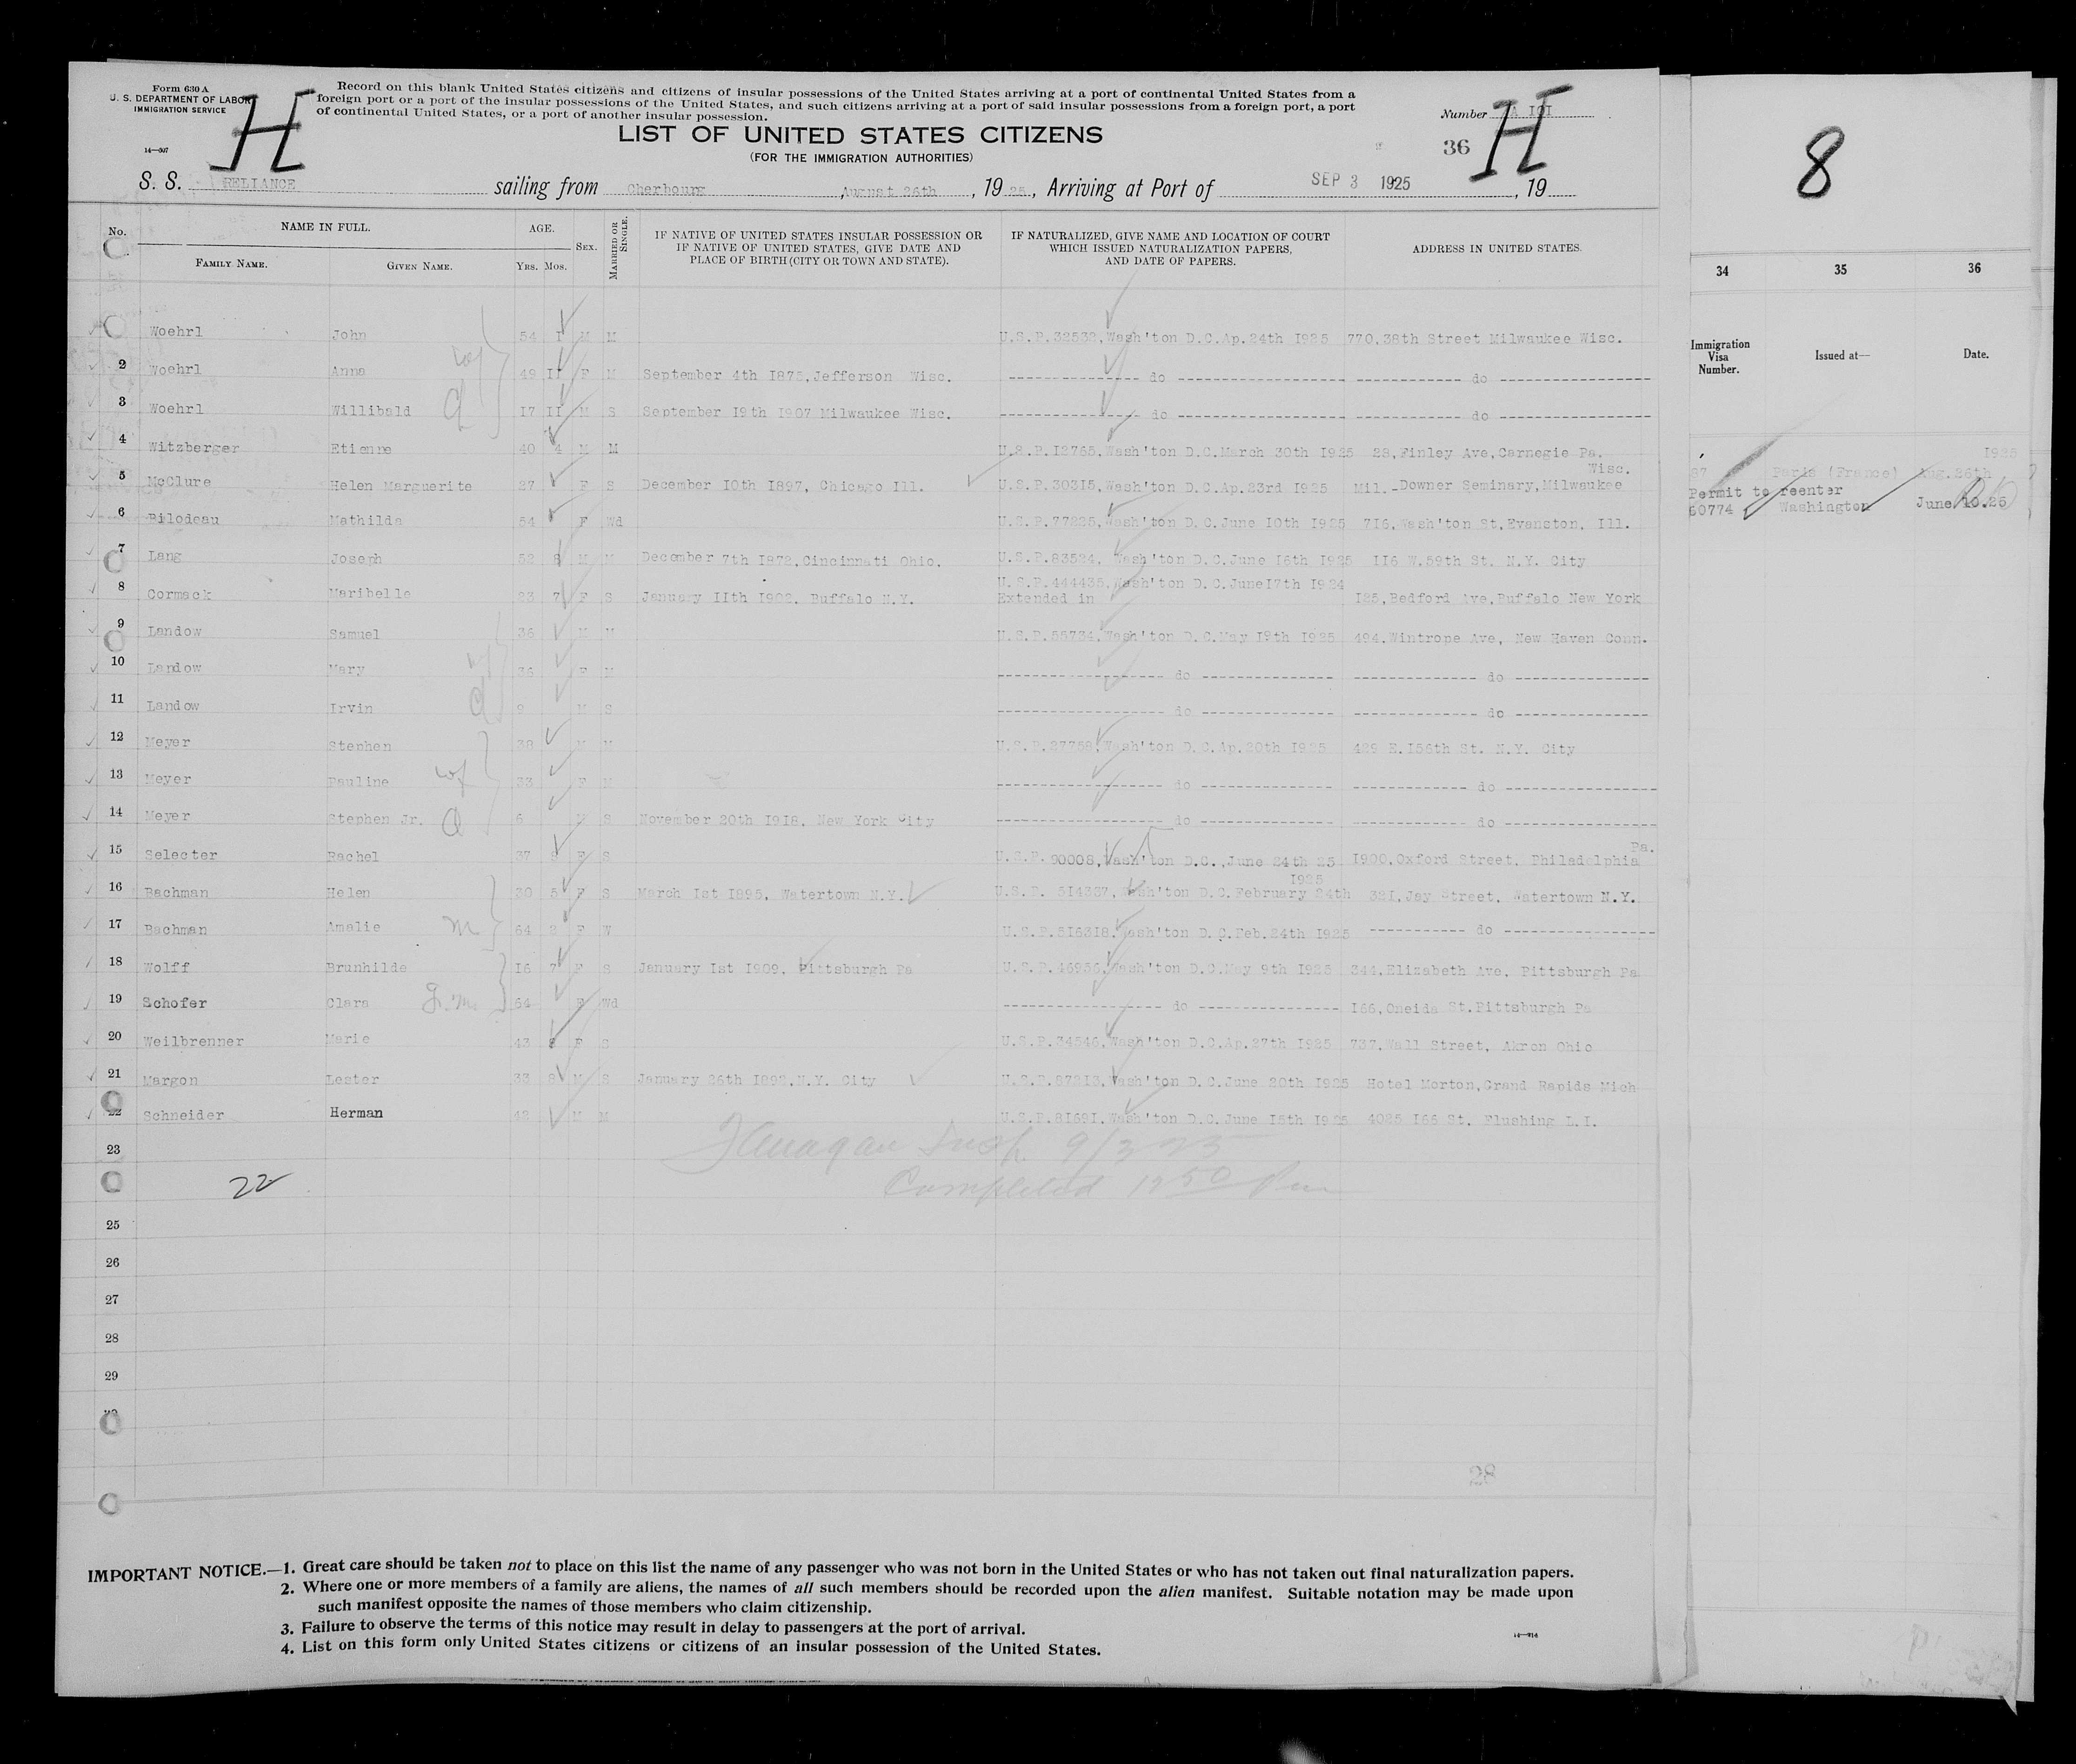 Form 630 A
U. S. DEPARTMENT OF LABOR
IMMIGRATION SERVICE
14—507
H
Record on this blank United States citizens and citizens of insular possessions of the United States arriving at a port of continental United States from a
foreign port or a port of the insular possessions of the United States, and such citizens arriving at a port of said insular possessions from a foreign port, a port
of continental United States, or a port of another insular possession.
LIST OF UNITED STATES CITIZENS
(FOR THE IMMIGRATION AUTHORITIES)
Number A 101
36 H
S. S. RELIANCE sailing from Cherbourg, August 26th, 1925, Arriving at Port of SEP 3 1925, 19
No. NAME IN FULL. FAMILY NAME. GIVEN NAME. AGE. YRS. MOS. SEX. MARRIED OR SINGLE. IF NATIVE OF UNITED STATES INSULAR POSSESSION OR IF NATIVE OF UNITED STATES, GIVE DATE AND PLACE OF BIRTH (CITY OR TOWN AND STATE). IF NATURALIZED, GIVE NAME AND LOCATION OF COURT WHICH ISSUED NATURALIZATION PAPERS, AND DATE OF PAPERS. ADDRESS IN UNITED STATES.
Woehrl John 54 I M M U.S.P.32532,Wash'ton D.C.Ap.24th I925 770.38th Street Milwaukee Wisc.
2 Woehrl Anna 49 II F M September 4th I875,Jefferson Wisc. do do
3 Woehrl Willibald I7 II M S September I9th I907 Milwaukee Wisc. do do
4 Witzberger Etienne 40 4 M M U.S.P.I2765,Wash'ton D.C.March 30th I925 28,Finley Ave,Carnegie Pa.
5 McClure Helen Marguerite 27 F S December I0th I897, Chicago Ill. U.S.P.303I5,Wash'ton D.C.Ap.23rd I925 Mil.-Downer Seminary,Milwaukee Wisc.
6 Bilodeau Mathilda 54 F Wd U.S.P.77225,Wash'ton D.C.June I0th I925 7I6,Wash'ton St,Evanston, Ill.
7 Lang Joseph 52 8 M M December 7th I872,Cincinnati Ohio. U.S.P.83524, Wash'ton D.C.June I6th I925 II6 W.59th St. N.Y. City
8 Cormack Maribelle 23 7 F S January IIth I902, Buffalo N.Y. U.S.P.444435,Wash'ton D.C.JuneI7th I924 Extended in I25,Bedford Ave,Buffalo New York
9 Landow Samuel 36 M M U.S.P.55734,Wash'ton D.C.May I9th I925 494,Wintrope Ave, New Haven Conn.
10 Landow Mary 36 F M do do
11 Landow Irvin 9 M S do do
12 Meyer Stephen 38 M M U.S.P.27758,Wash'ton D.C.Ap.20th I925 429 E.I56th St. N.Y. City
13 Meyer Pauline 33 F M do do
14 Meyer Stephen Jr. 6 M S November 20th I9I8, New York City do do
15 Selecter Rachel 37 F S U.S.P. 90008,Wash'ton D.C.,June 24th 25 I900,Oxford Street, Philadelphia Pa.
16 Bachman Helen 30 5 F S March Ist I895, Watertown N.Y. U.S.P. 5I4387, Wash'ton D.C.February 24th I925 32I,Jay Street, Watertown N.Y.
17 Bachman Amalie 64 2 F W U.S.P.5I63I8,Wash'ton D.C.Feb.24th I925 do
18 Wolff Brunhilde I6 7 F S January Ist I909, Pittsburgh Pa U.S.P.46956,Wash'ton D.C.May 9th I925 344,Elizabeth Ave, Pittsburgh Pa
19 Schofer Clara 64 F Wd do I66,Oneida St.Pittsburgh Pa
20 Weilbrenner Marie 43 8 F S U.S.P.34546,Wash'ton D.C.Ap.27th I925 737,Wall Street, Akron Ohio
21 Margon Lester 33 8 M S January 26th I892,N.Y. City U.S.P.872I3,Wash'ton D.C.June 20th I925 Hotel Morton,Grand Rapids Mich
22 Schneider Herman 42 M M U.S.P.8I69I,Wash'ton D.C.June I5th I925 4025 I66 St. Flushing L.I.
23
Flanagan Insp. 9/3 25
Completed 12 50 Pm
22
25
26
27
28
29
28
IMPORTANT NOTICE.—1. Great care should be taken not to place on this list the name of any passenger who was not born in the United States or who has not taken out final naturalization papers.
2. Where one or more members of a family are aliens, the names of all such members should be recorded upon the alien manifest. Suitable notation may be made upon
such manifest opposite the names of those members who claim citizenship.
3. Failure to observe the terms of this notice may result in delay to passengers at the port of arrival.
4. List on this form only United States citizens or citizens of an insular possession of the United States.
14—914
8
34 35 36
Immigration Visa Number. Issued at— Date.
1925
87 Paris (France) Aug.26th
Permit to reenter
60774 Washington June 10.25